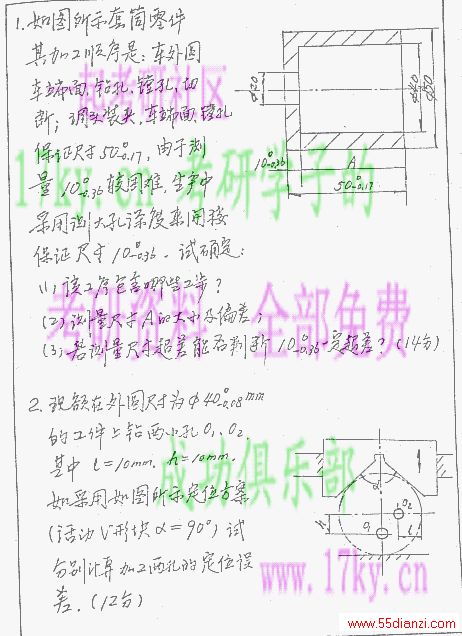 1.如图所示套筒零件
其加工顺序是:车外圆
车端面,钻孔,镗孔,切
断;调头装夹,车端面,镗孔
保证尺寸50⁰₋₀.₁₇,由于测
量10⁰₋₀.₃₆较困难,生产中
采用测大孔深度来间接
保证尺寸10⁰₋₀.₃₆.试确定:
(1)该工序包含哪些工步?
(2)测量尺寸A的大小及偏差;
(3)若测量尺寸超差能否判断10⁰₋₀.₃₆一定超差?(14分)
φ20
φ40
φ50
10⁰₋₀.₃₆
A
50⁰₋₀.₁₇
2.现欲在外圆尺寸为φ40⁰₋₀.₀₈mm
的工件上钻两小孔O₁、O₂.
其中l=10mm,h=10mm.
如采用如图所示定位方案
(活动V形块α=90°)试
分别计算加工两孔的定位误
差.(12分)
α
O₂
O₁
h
l
起考研社区
17ky.cn 考研学子的
考研资料 全部免费
成功俱乐部
www.17ky.cn
www.55dianzi.com